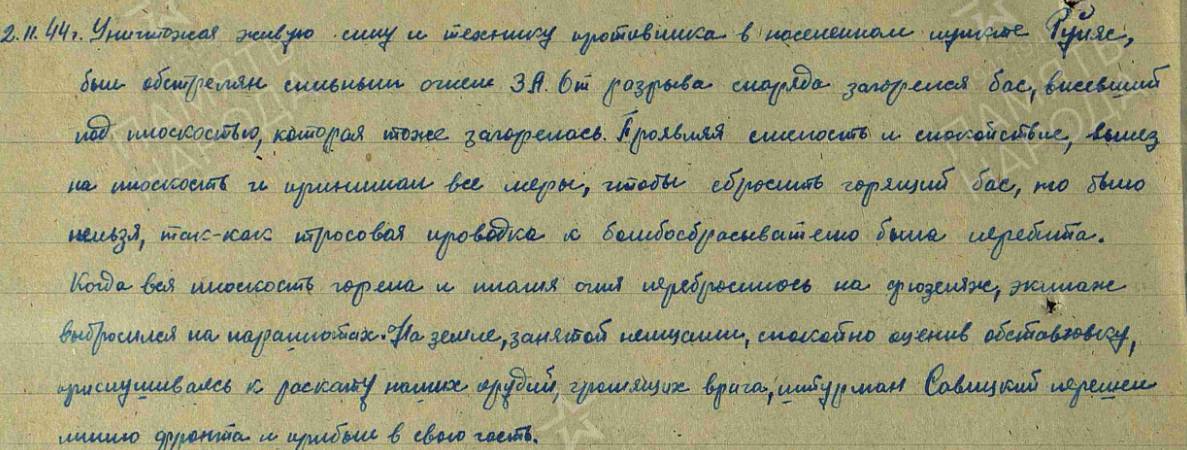 2.11.44г. Уничтожая живую силу и технику противника в населенном пункте Руцяс,
был обстрелян сильным огнем ЗА. От разрыва снаряда загорелся бас, висевший
под плоскостью, которая тоже загорелась. Проявляя смелость и спокойствие, вылез
на плоскость и принимал все меры, чтобы сбросить горящий бас, но было
нельзя, так-как тросовая проводка к бомбосбрасывателю была перебита.
Когда вся плоскость горела и пламя огня перебросилось на фюзеляж, экипаж
выбросился на парашютах. На земле, занятой немцами, спокойно оценив обстановку,
прислушиваясь к раскату наших орудий, громящих врага, штурман Савицкий перешел
линию фронта и прибыл в свою часть.
ПАМЯТЬ НАРОДА
ПАМЯТЬ НАРОДА